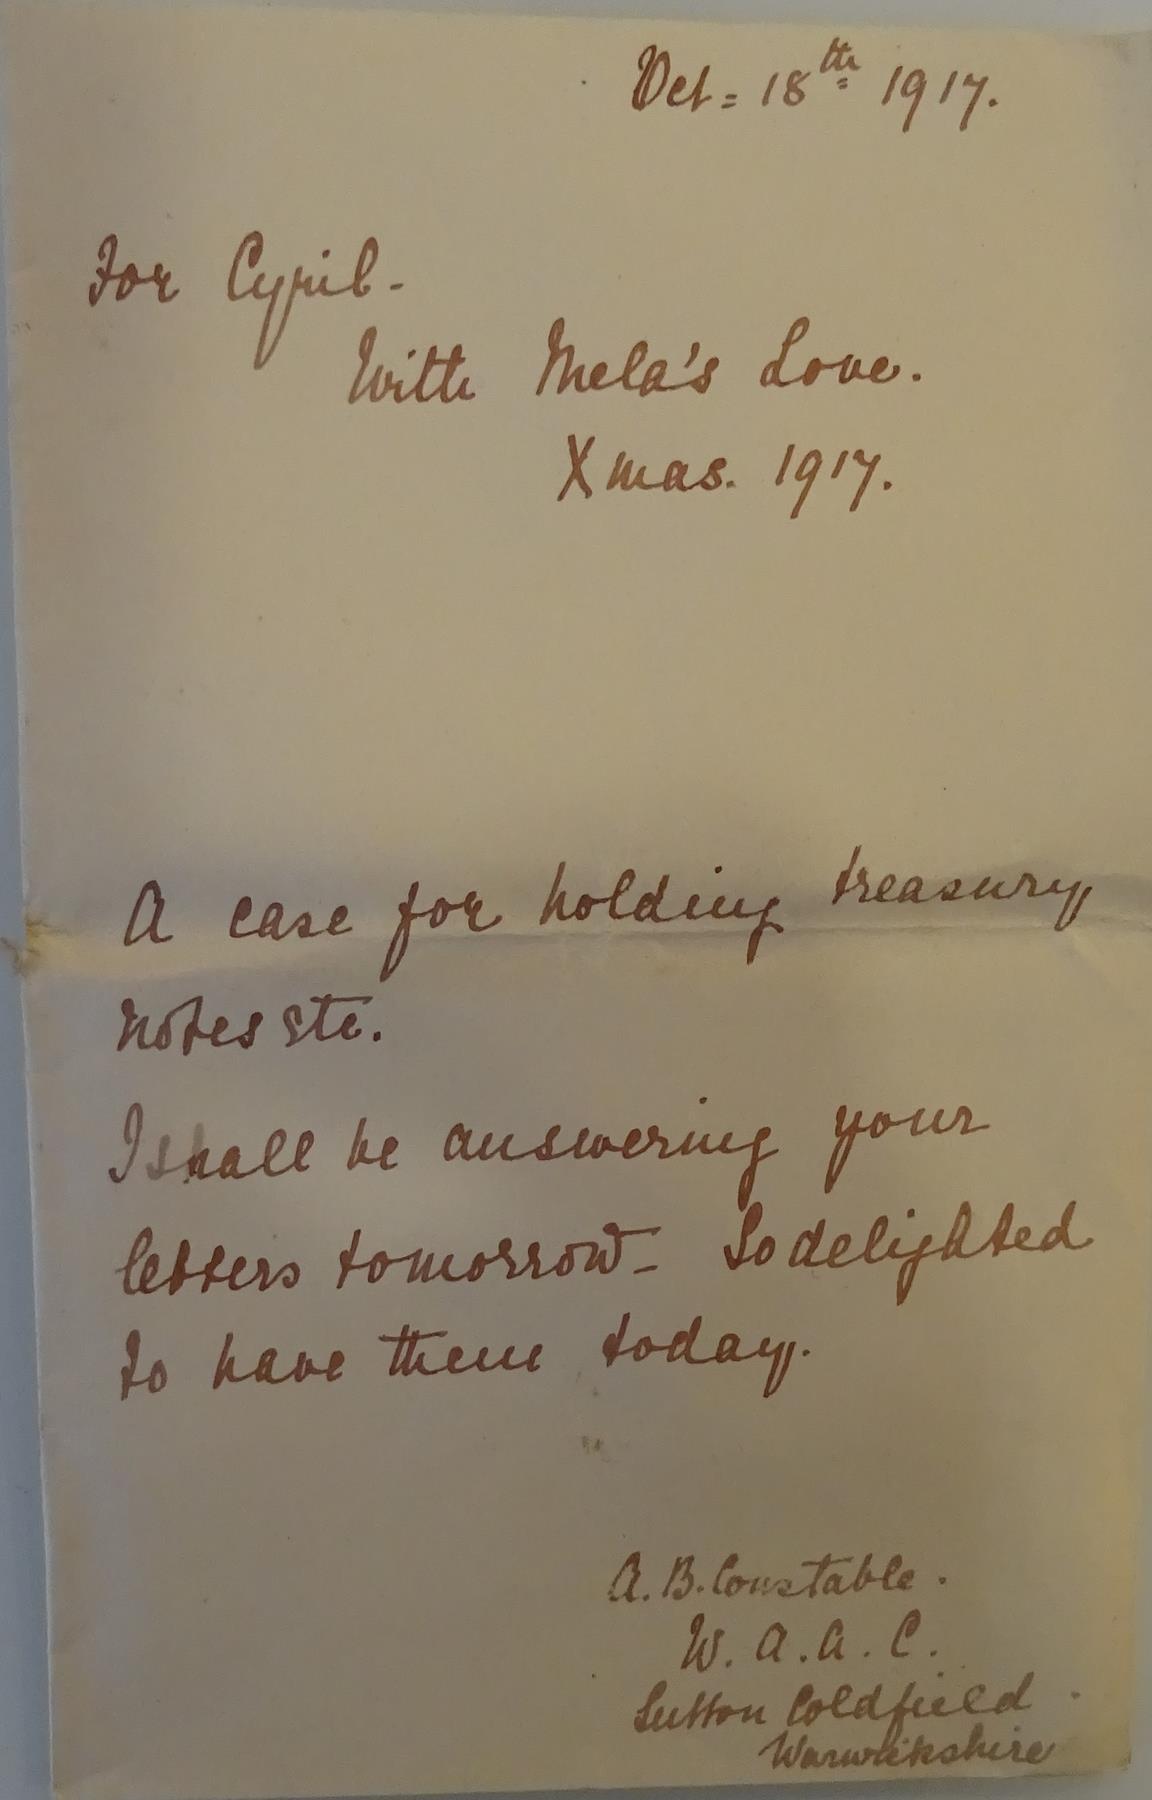 Oct= 18th 1917.
For Cyril-
With Mela's Love.
Xmas. 1917.
A case for holding treasury
notes etc.
I shall be answering your
letters tomorrow- So delighted
to have them today.
A. B. Constable.
W. A. A. C.
Sutton Coldfield
Warwickshire